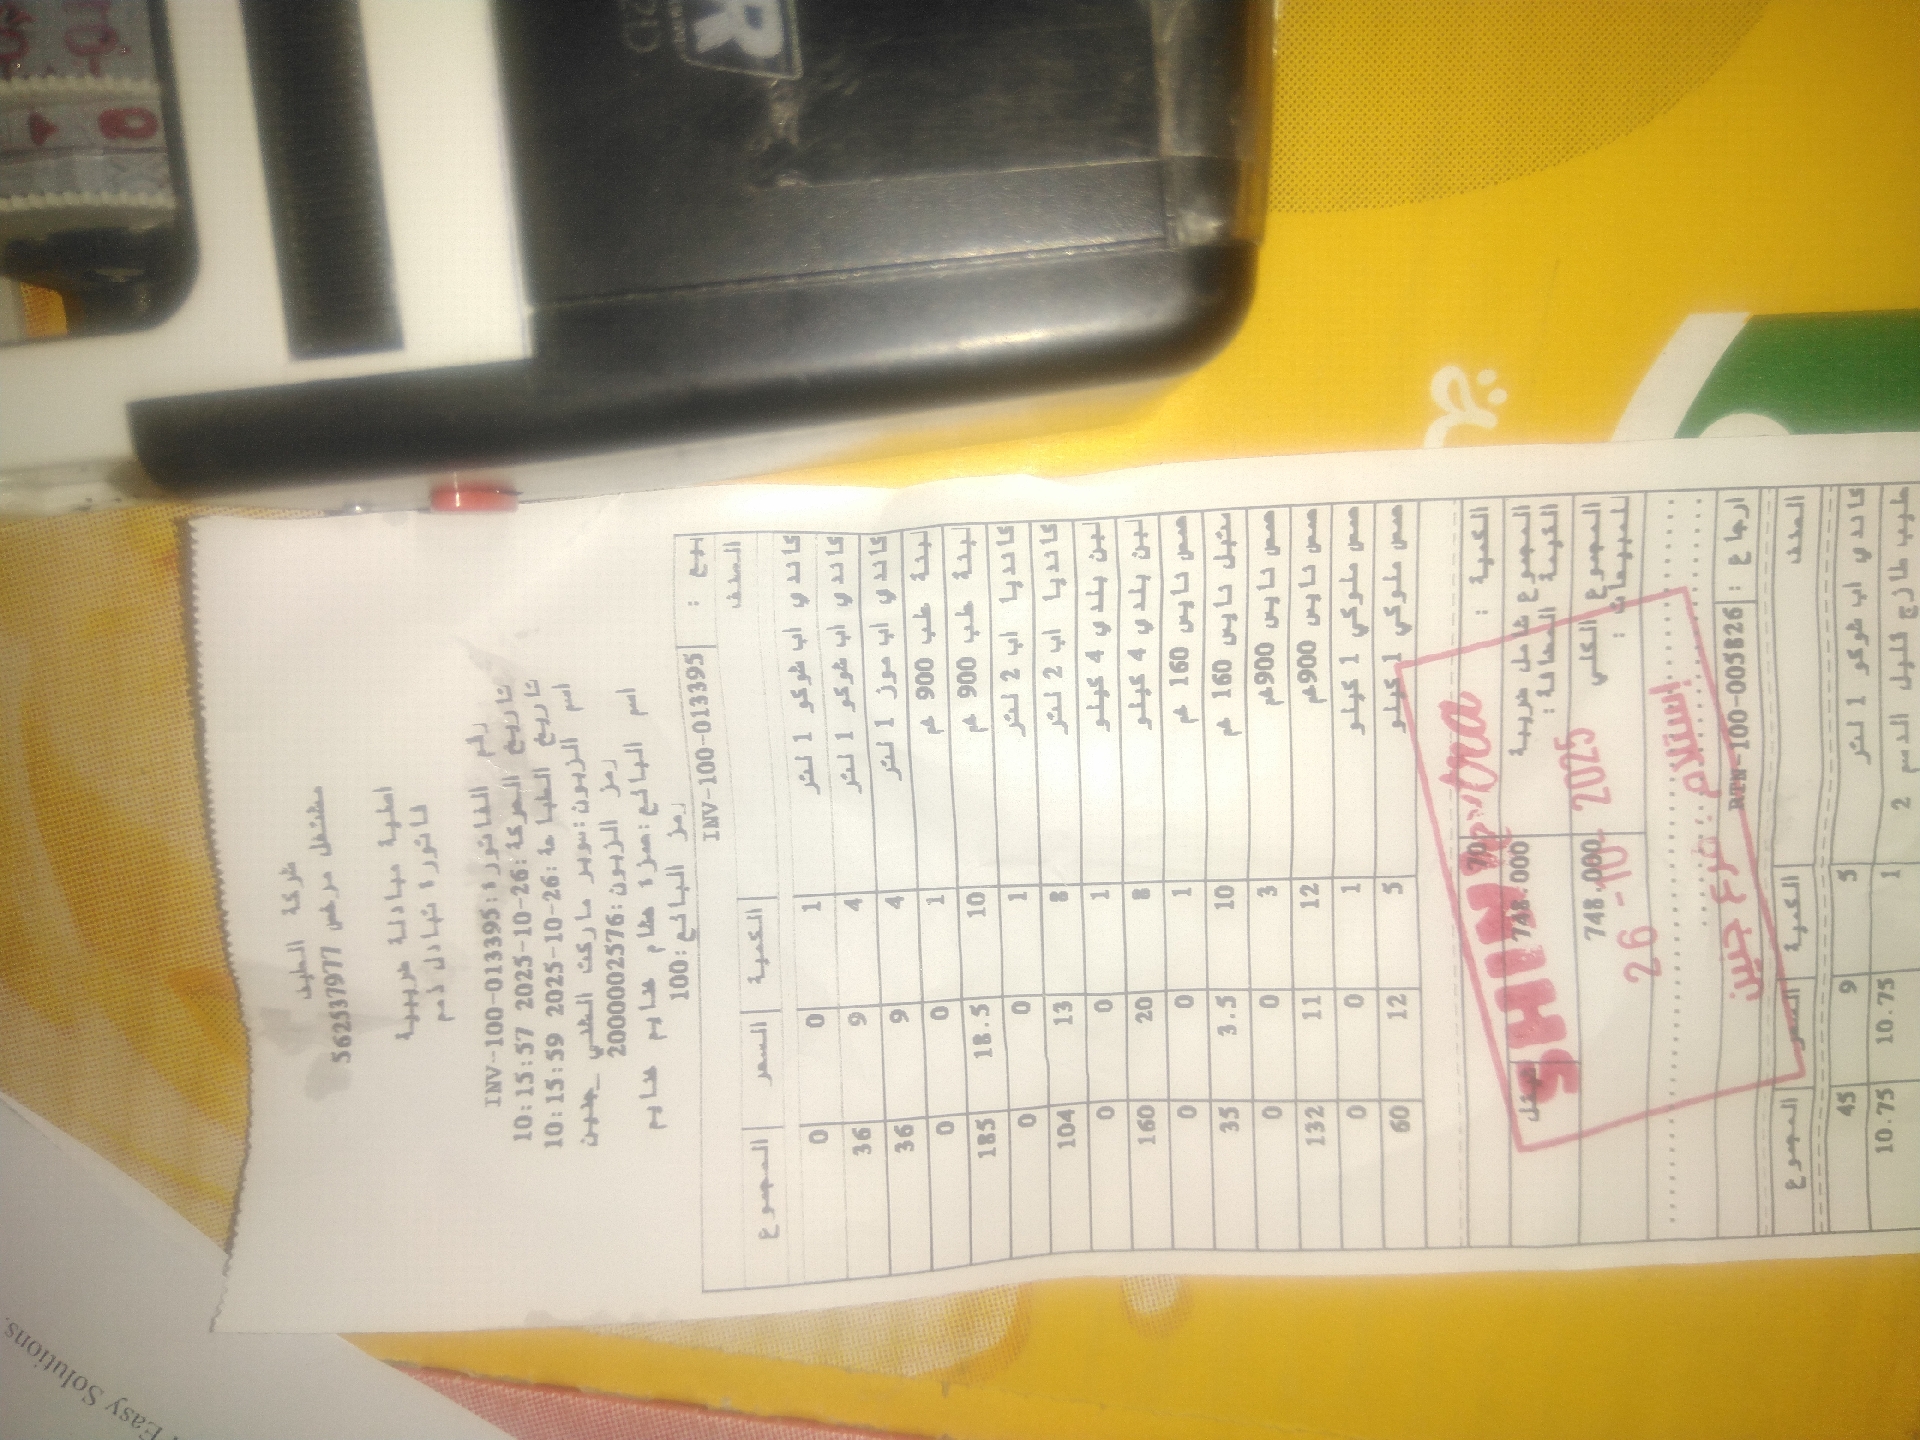 شركة الطيف
مشتغل مرخص 562537977
اصلية مبادلة ضريبية
فاتورة تبادل ذمم
رقم الفاتورة: INV-100-013395
تاريخ الحركة: 2025-10-26 10:15:57
تاريخ الطباعة: 2025-10-26 10:15:59
اسم الزبون: سوبر ماركت الشني _جنين
رمز الزبون: 2000002576
اسم البائع: حمزة هشام
رمز البائع: 100
بيع : INV-100-013395
الصنف الكمية السعر المجموع
كاندي اب شوكو 1 لتر 1 0 0
كاندي اب شوكو 1 لتر 4 9 36
كاندي اب موز 1 لتر 4 9 36
لبنة طب 900 غم 1 0 0
لبنة طب 900 غم 10 18.5 185
كانديا اب 2 لتر 1 0 0
كانديا اب 2 لتر 8 13 104
لبن بلدي 4 كيلو 1 0 0
لبن بلدي 4 كيلو 8 20 160
حمص نايس 160 غم 1 0 0
متبل نايس 160 غم 10 3.5 35
حمص نايس 900غم 3 0 0
حمص نايس 900غم 12 11 132
حمص ملوكي 1 كيلو 1 0 0
حمص ملوكي 1 كيلو 5 12 60
الكمية : 70
المجموع شامل ضريبة 748.000 شيكل
الكمية المضافة :
المجموع الكلي 748.000
للمبيعات :
SHINI extra
26-10-2025
إستلام : فرع جنين
ارجاع : RTN-100-005826
الصنف الكمية السعر المجموع
كاندي اب شوكو 1 لتر 5 9 45
حليب طازج قليل الدسم 2 1 10.75 10.75
Easy Solutions.
R